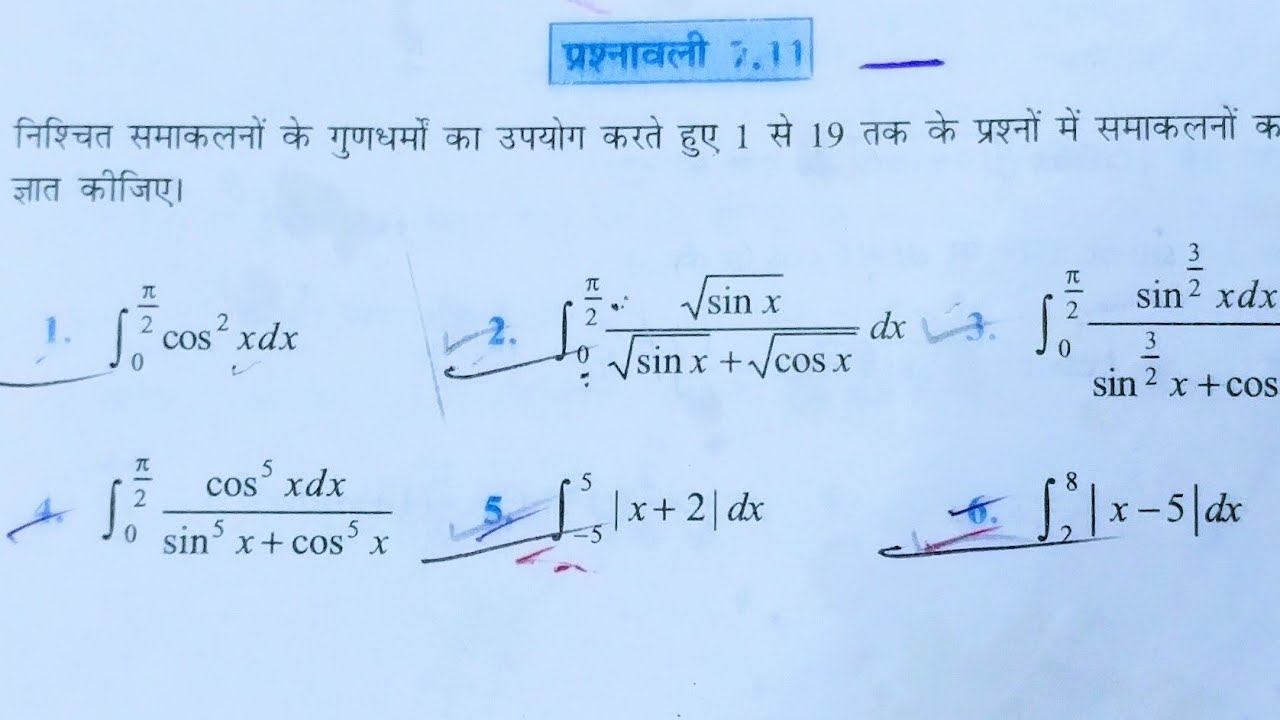 प्रश्नावली 7.11
निश्चित समाकलनों के गुणधर्मों का उपयोग करते हुए 1 से 19 तक के प्रश्नों में समाकलनों क
ज्ञात कीजिए।
1. ∫₀^(π/2) cos² x dx 2. ∫₀^(π/2) √(sin x) / (√(sin x) + √(cos x)) dx 3. ∫₀^(π/2) sin^(3/2) x dx / (sin^(3/2) x + cos
4. ∫₀^(π/2) cos⁵ x dx / (sin⁵ x + cos⁵ x) 5. ∫₋₅⁵ |x + 2| dx 6. ∫₂⁸ |x − 5| dx